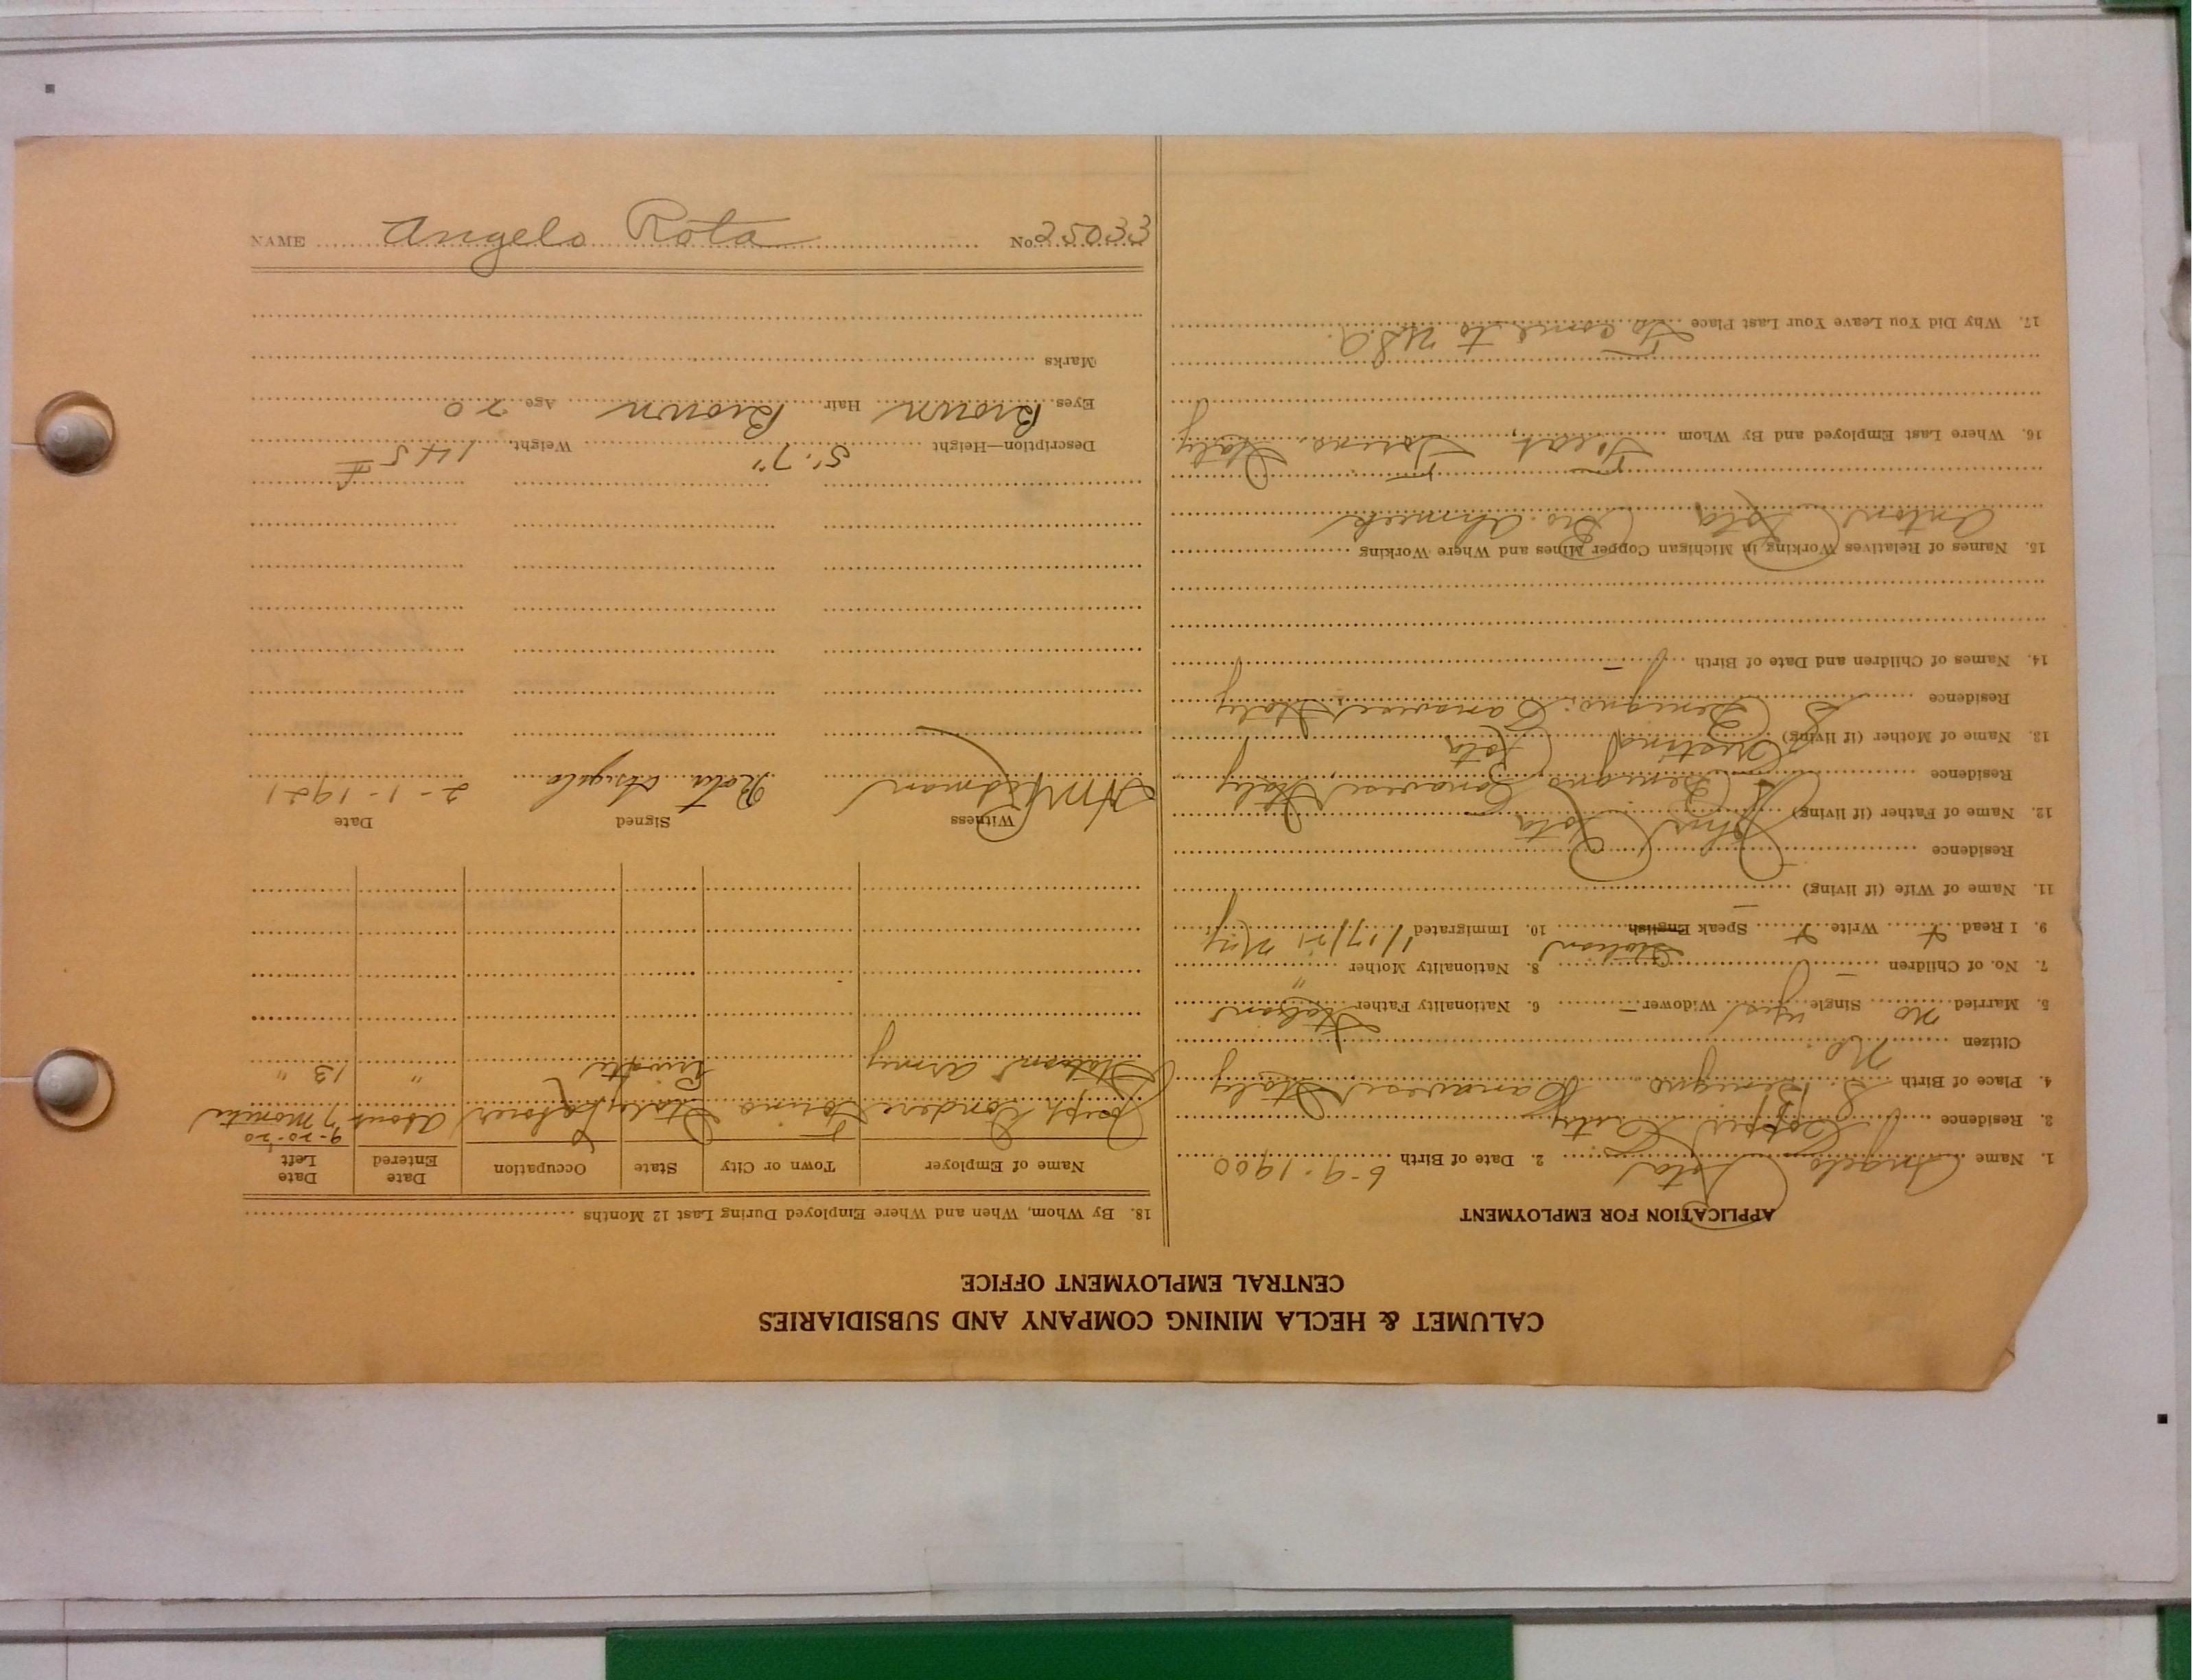 CALUMET & HECLA MINING COMPANY AND SUBSIDIARIES
CENTRAL EMPLOYMENT OFFICE
APPLICATION FOR EMPLOYMENT
1. Name Angelo Rota 2. Date of Birth 6-9-1900
3. Residence Copper City
4. Place of Birth S. Benigno Canavese Italy
Citizen No
5. Married no Single yes Widower – 6. Nationality Father Italian
7. No. of Children – 8. Nationality Mother "
9. I Read Write Speak English Italian 10. Immigrated 1/17/21 N.Y.
11. Name of Wife (if living) –
Residence
12. Name of Father (if living) John Rota
Residence S. Benigno Canavese Italy
13. Name of Mother (if living) Rota
Residence S. Benigno Canavese Italy
14. Names of Children and Date of Birth –
15. Names of Relatives Working in Michigan Copper Mines and Where Working
Anton Rota Bro. Ahmeek
16. Where Last Employed and By Whom Torino Italy
17. Why Did You Leave Your Last Place To come to U.S.A.
18. By Whom, When and Where Employed During Last 12 Months
Name of Employer Town or City State Occupation Date Entered Date Left
9-20-20
Joseph Torino Italy Laborer About 7 months
Italian Army Private " 13 "
Witness Signed Date
Rota Angelo 2-1-1921
Description—Height 5'-7" Weight 145 #
Eyes Brown Hair Brown Age 20
Marks
NAME Angelo Rota No. 25033